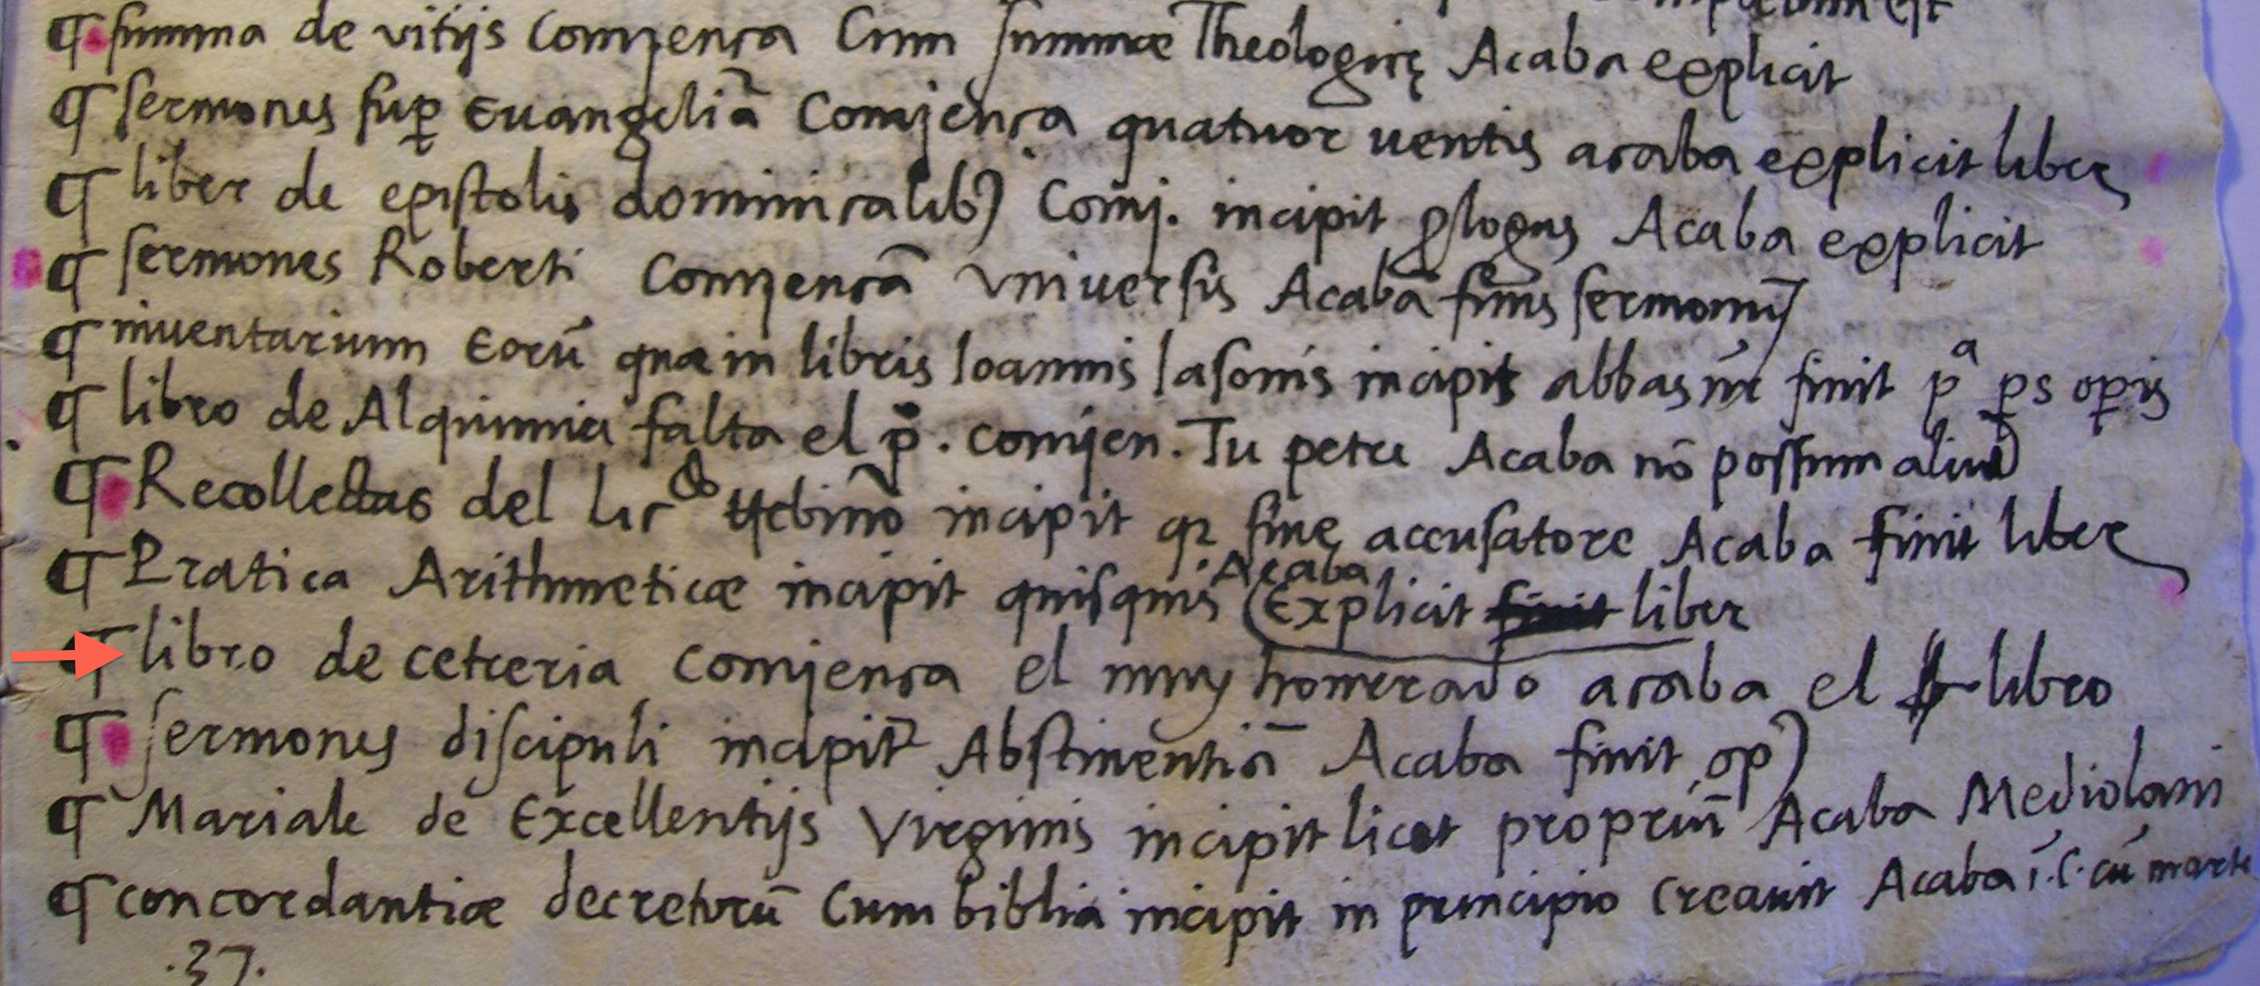 ¶ summa de vitijs Comjença Cum summæ Theologicę Acaba explicit
¶ sermones sup̱ Euangeliā Comjença quatuor uentis acaba explicit liber
¶ liber de epistolis dominicalib) Comj. incipit ꝓlogus Acaba explicit
¶ sermones Roberti Comjençā vniuersis Acabā finis sermonū
¶ inuentarium Eorū quæ in libris Ioannis Iasonis incipit abbas finit pᵃ ps op̱is
¶ libro de Alquimia falta el p̊. comjen. Tu petre Acaba nō possum aliud
¶ Recollectas del licᵈᵒ incipit qꝛ sine accusatore Acaba finit liber
¶ Pratica Arithmeticæ incipit quisquis Acaba Explicit liber
¶ libro de cetreria comjença el muy honrrado acaba el libro
¶ sermones discipuli incipit Abstinentiā Acaba finit op)
¶ Mariale de Excellentijs Virginis incipit licet propriū Acaba Mediolani
¶ concordantiæ decretorū Cum biblia incipit in principio Creauit Acaba i.C. cū marte
.37.